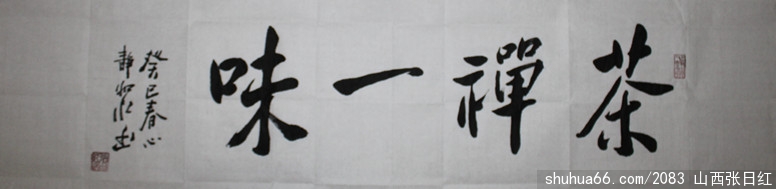 茶禪一味
癸巳春心
靜如水書
shuhua66.com/2083 山西张日红